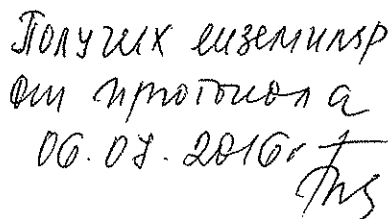 Получих екземпляр
от протокола
06.07.2016г.